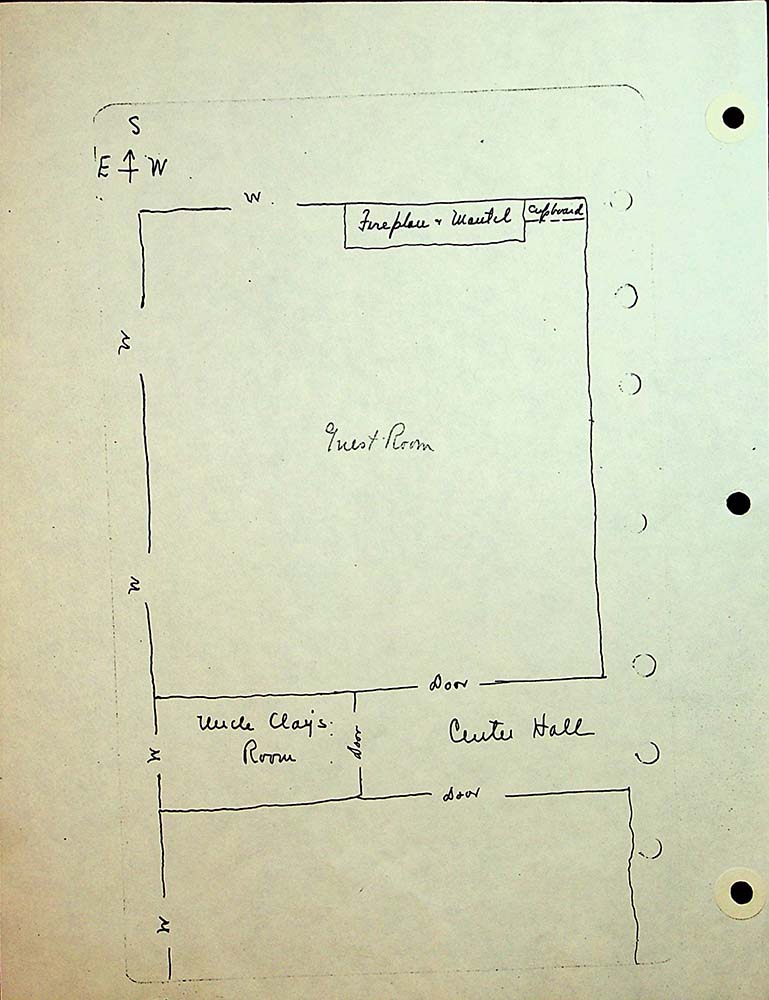 S
E W
W
Fireplace & Mantel
Cupboard
W
Guest Room
W
Door
Uncle Clay's
Room
Door
Center Hall
W
Door
W